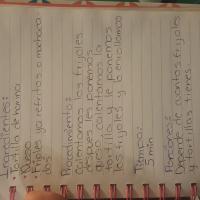 Ingredientes:
Tortilla de harina
Queso
Frijoles ya refritos o machaca
dos
Procedimiento:
Calentamos los frijoles
despues les ponemos
calentamos la
tortilla le ponemos
los frijoles y a enrollamos
Tiempo:
5 min
Porciones:
Depende de cuantos frijoles
y tortillas tienes